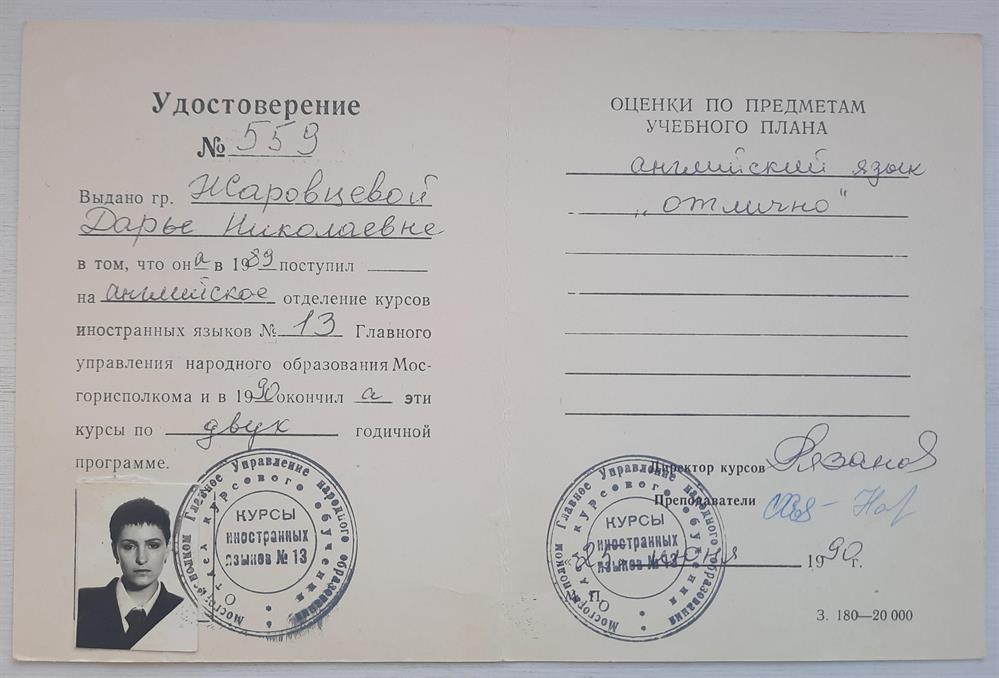 Удостоверение
№ 559
Выдано гр. Жаровцевой
Дарье Николаевне
в том, что она в 1989 поступил
на английское отделение курсов
иностранных языков № 13 Главного
управления народного образования Мос-
горисполкома и в 1990 окончил а эти
курсы по двух годичной
программе.
Мосгорисполком Главное Управление народного образования
Отдел курсового обучения
КУРСЫ
иностранных
языков № 13
ОЦЕНКИ ПО ПРЕДМЕТАМ
УЧЕБНОГО ПЛАНА
английский язык
„отлично"
Директор курсов Рязанов
Преподаватели
Мосгорисполком Главное Управление народного образования
Отдел курсового обучения
КУРСЫ
иностранных
языков № 13
25 июня 1990 г.
М. П.
З. 180—20 000